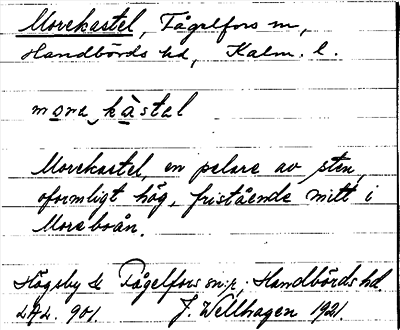 Morekastel, Fågelfors sn,
Handbörds hd, Kalm. l.
more kàstal
Morekastel, en pelare av sten,
oformligt hög, fristående mitt i
More boån.
Högsby & Fågelfors sn:r, Handbörds hd.
J. Wellhagen 1921.